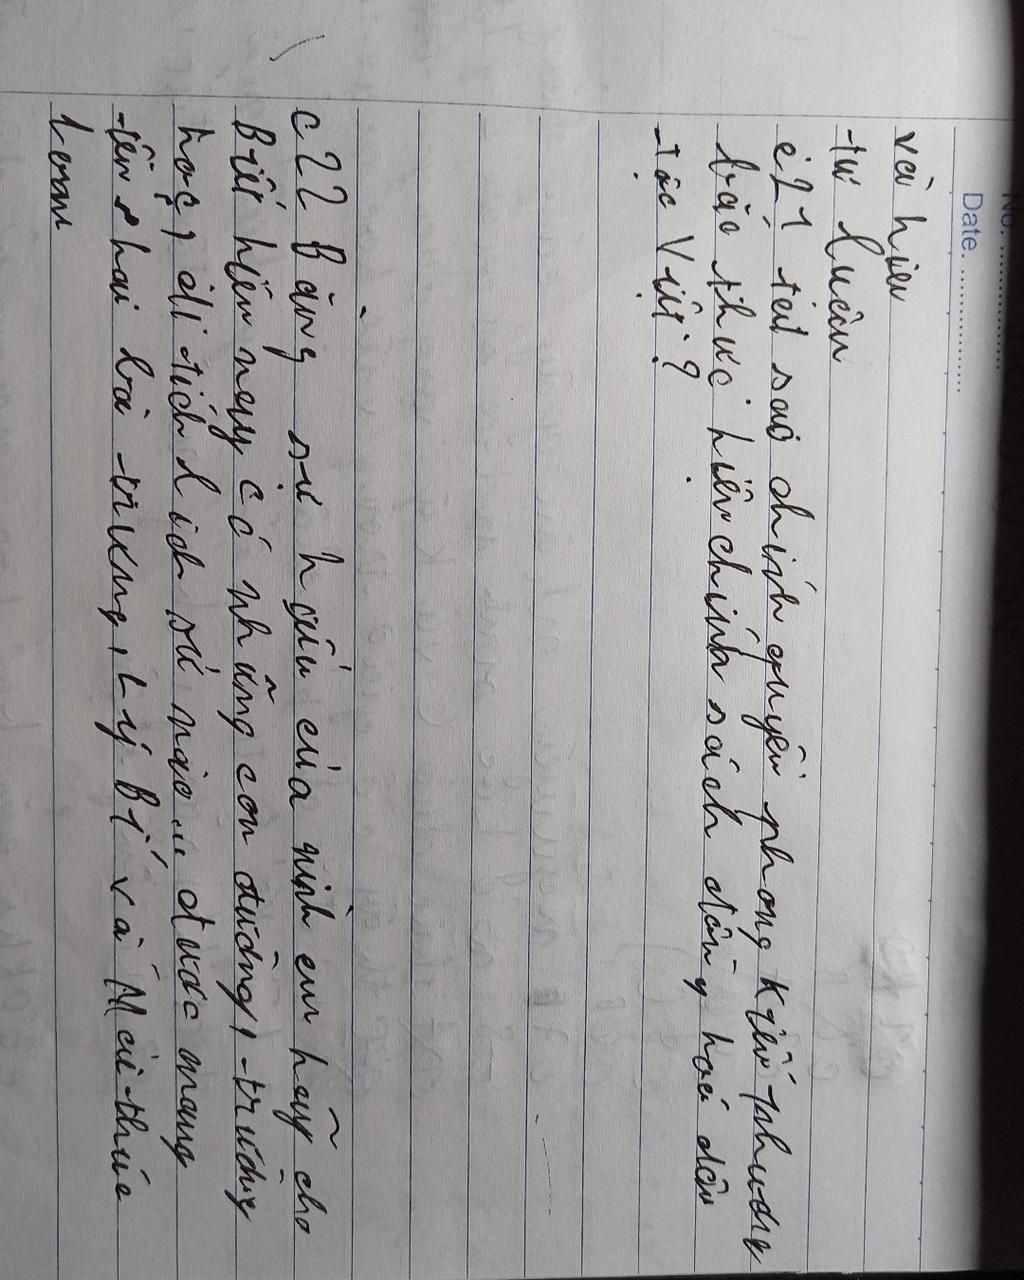 No. ............
Date. ............
và hiện
-tự luận
c21 tại sao chính quyền phong kiến phương
bắc thực hiện chính sách đồng hoá dân
tộc Việt?
c22 Bằng sự hiểu của mình em hãy cho
Biết hiện nay có những con đường, trường
học, di tích lịch sử nào... được mang
tên hai bà trưng, Lý Bí và Mai thúc
loan